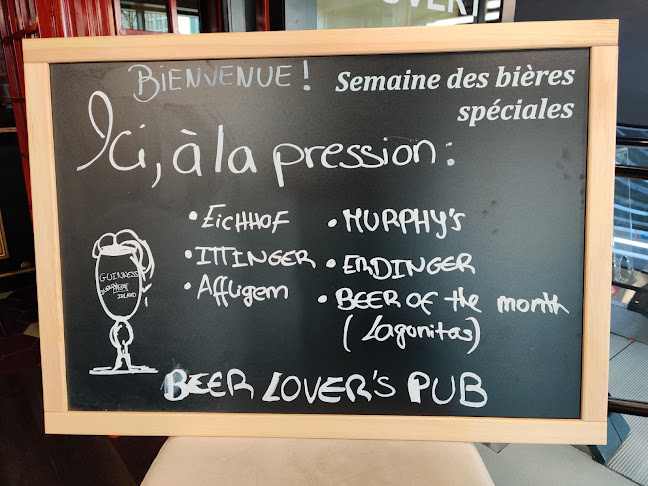 BIENVENUE!
Semaine des bières
spéciales
Ici, à la pression:
• EICHHOF
• ITTINGER
• Affligem
• MURPHY'S
• ERDINGER
• BEER OF the month
(Lagunitas)
GUINNESS
BEER LOVER'S PUB